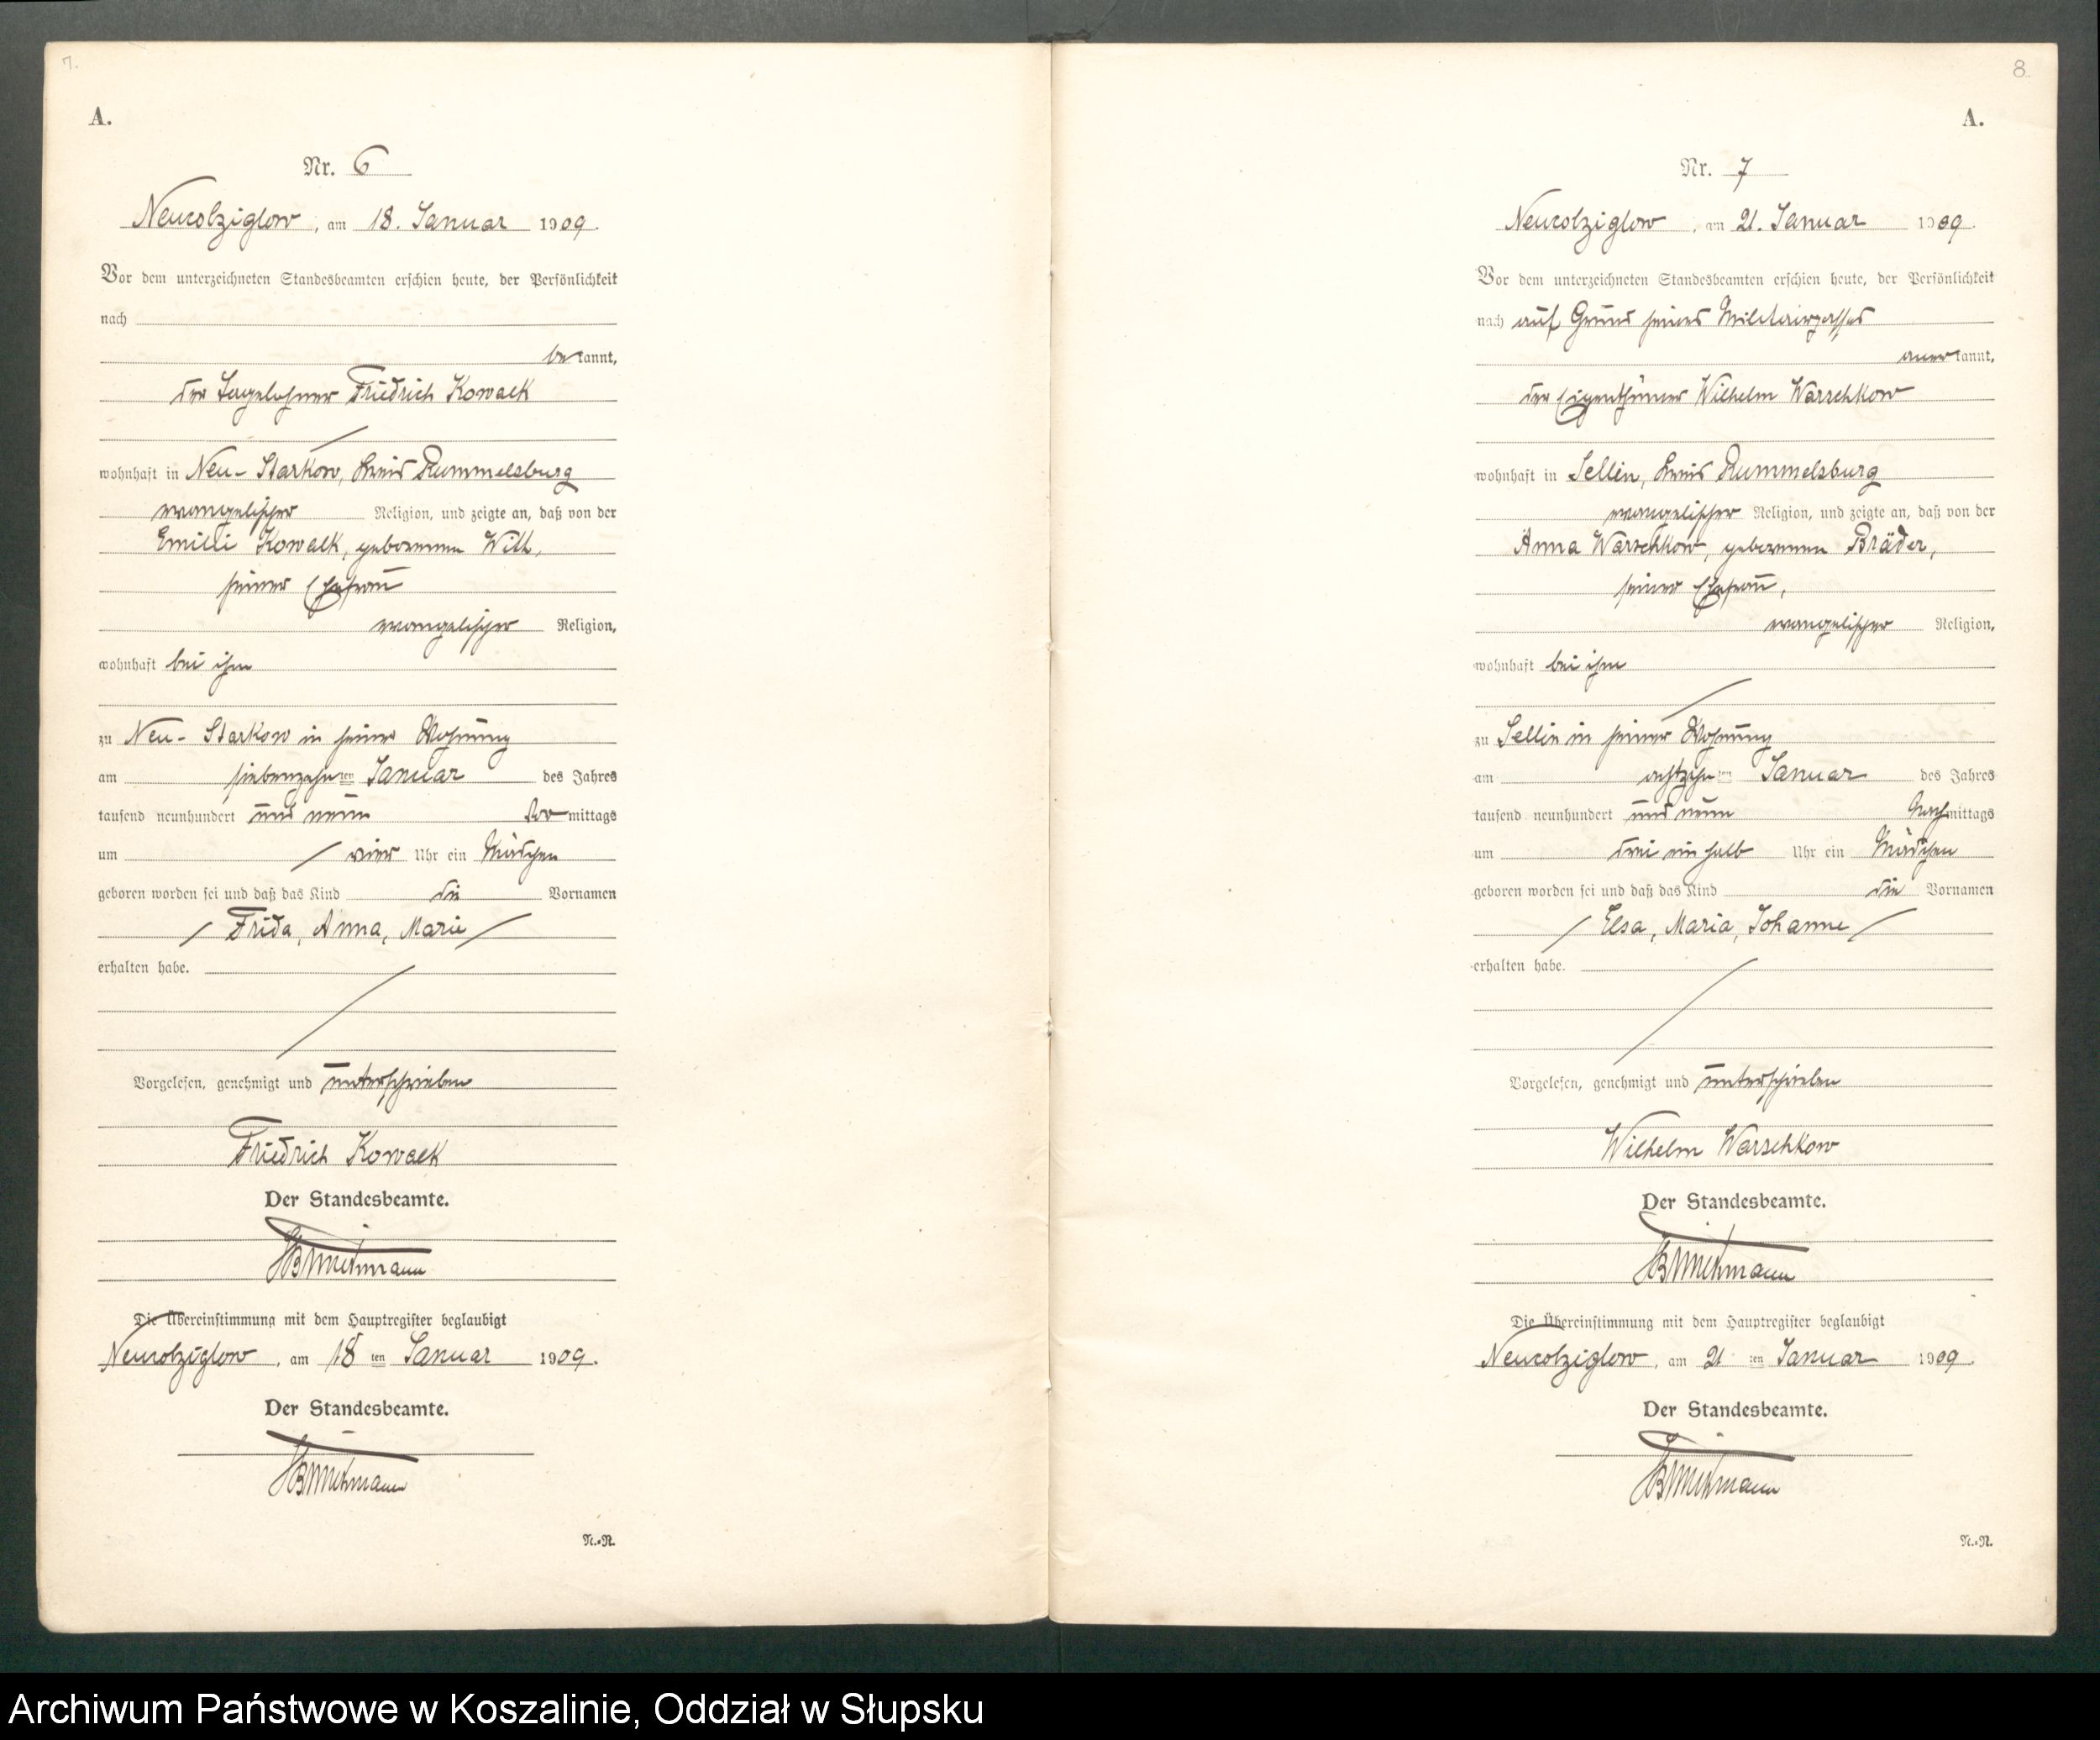 7.
A.
Nr. 6
Neucolziglow, am 18. Januar 1909.
Vor dem unterzeichneten Standesbeamten erschien heute, der Persönlichkeit
nach
bekannt,
der Tagelohner Friedrich Kowalk
wohnhaft in Neu-Starkow, Kreis Rummelsburg
evangelischer Religion, und zeigte an, daß von der
Emilie Kowalk, geborenen Witt,
seiner Ehefrau
evangelischer Religion,
wohnhaft bei ihm
zu Neu-Starkow in seiner Wohnung
am siebenzehnten Januar des Jahres
tausend neunhundert und neun Vormittags
um vier Uhr ein Mädchen
geboren worden sei und daß das Kind die Vornamen
Frida, Anna, Marie
erhalten habe.
Vorgelesen, genehmigt und unterschrieben
Friedrich Kowalk
Der Standesbeamte.
Die Übereinstimmung mit dem Hauptregister beglaubigt
Neucolziglow, am 18ten Januar 1909.
Der Standesbeamte.
N.-N.
8
A.
Nr. 7
Neucolziglow, am 21. Januar 1909.
Vor dem unterzeichneten Standesbeamten erschien heute, der Persönlichkeit
nach auf Grund seines Militairpasses
anerkannt,
der Eigenthümer Wilhelm Warschkow
wohnhaft in Sellin, Kreis Rummelsburg
evangelischer Religion, und zeigte an, daß von der
Anna Warschkow, geborenen Bräder,
seiner Ehefrau,
evangelischer Religion,
wohnhaft bei ihm
zu Sellin in seiner Wohnung
am achtzehnten Januar des Jahres
tausend neunhundert und neun Nachmittags
um drei ein halb Uhr ein Mädchen
geboren worden sei und daß das Kind die Vornamen
Elsa, Maria, Johanne
erhalten habe.
Vorgelesen, genehmigt und unterschrieben
Wilhelm Warschkow
Der Standesbeamte.
Die Übereinstimmung mit dem Hauptregister beglaubigt
Neucolziglow, am 21ten Januar 1909.
Der Standesbeamte.
N.-N.
Archiwum Państwowe w Koszalinie, Oddział w Słupsku